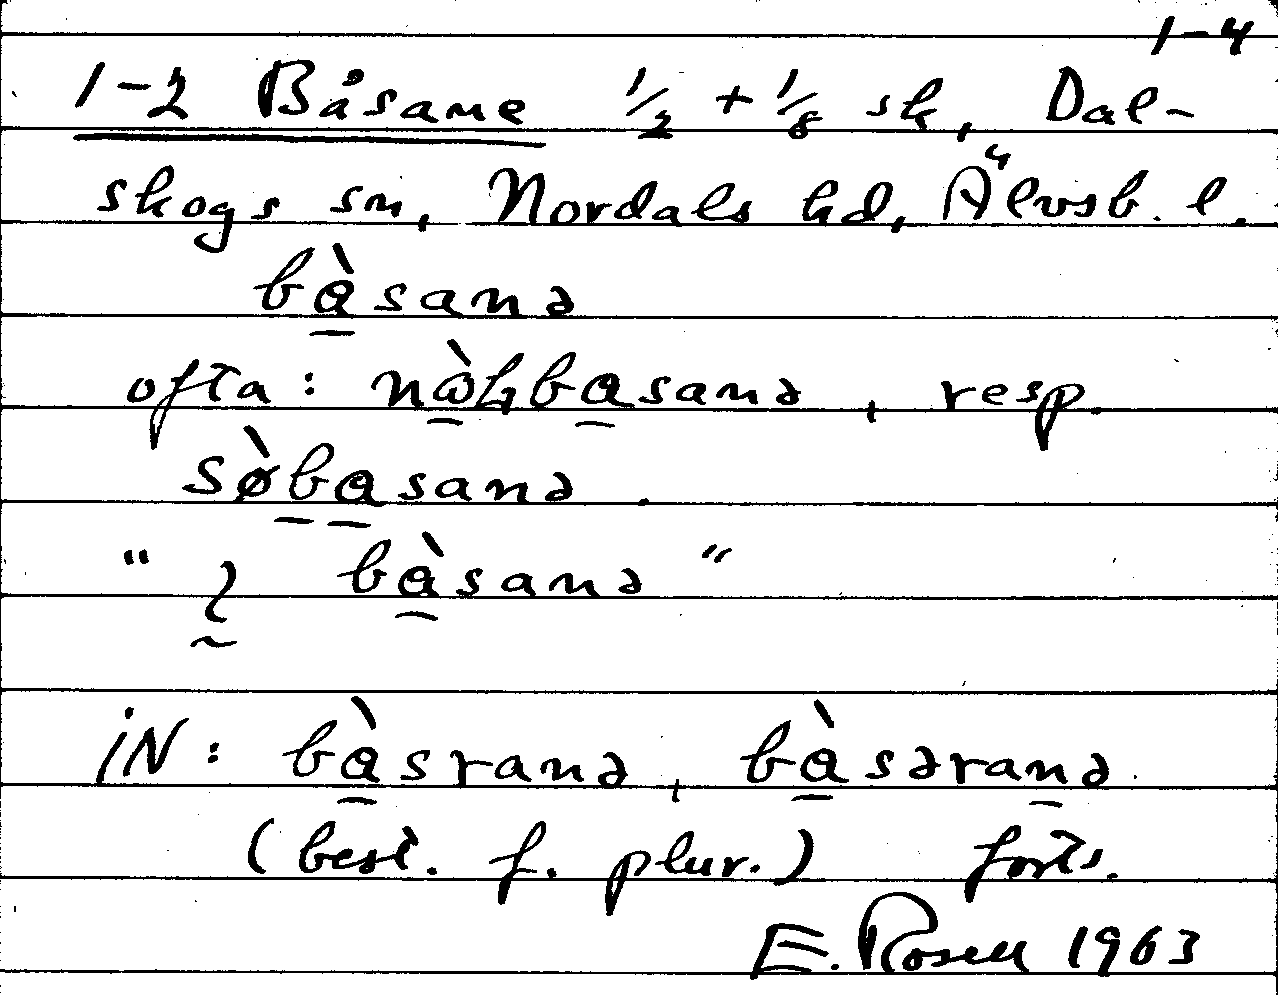 1-4
1-2 Båsane 1/2 + 1/8 sk, Dal-
skogs sn, Nordals hd, Älvsb. l.
bàsanə
ofta: basanə, resp.
sø̀basanə.
" bàsanə "
iN: bàsranə, bàsəranə
(best. f. plur.) forts.
E. Rosell 1963